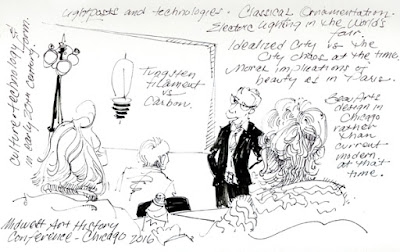 Lightposts and technologies. Classical Ornamentation.
Electric Lighting in the World's
fair.
Idealized City vs the
City chaos at the time.
Moral implications of
beauty as in Paris.
Culture & technology &
in early 20th Century. form.
Tungsten
filament
vs
Carbon.
Beau Arts
design in
Chicago
rather
than
current
modern
at that
time.
Midwest Art History
Conference - Chicago 2016